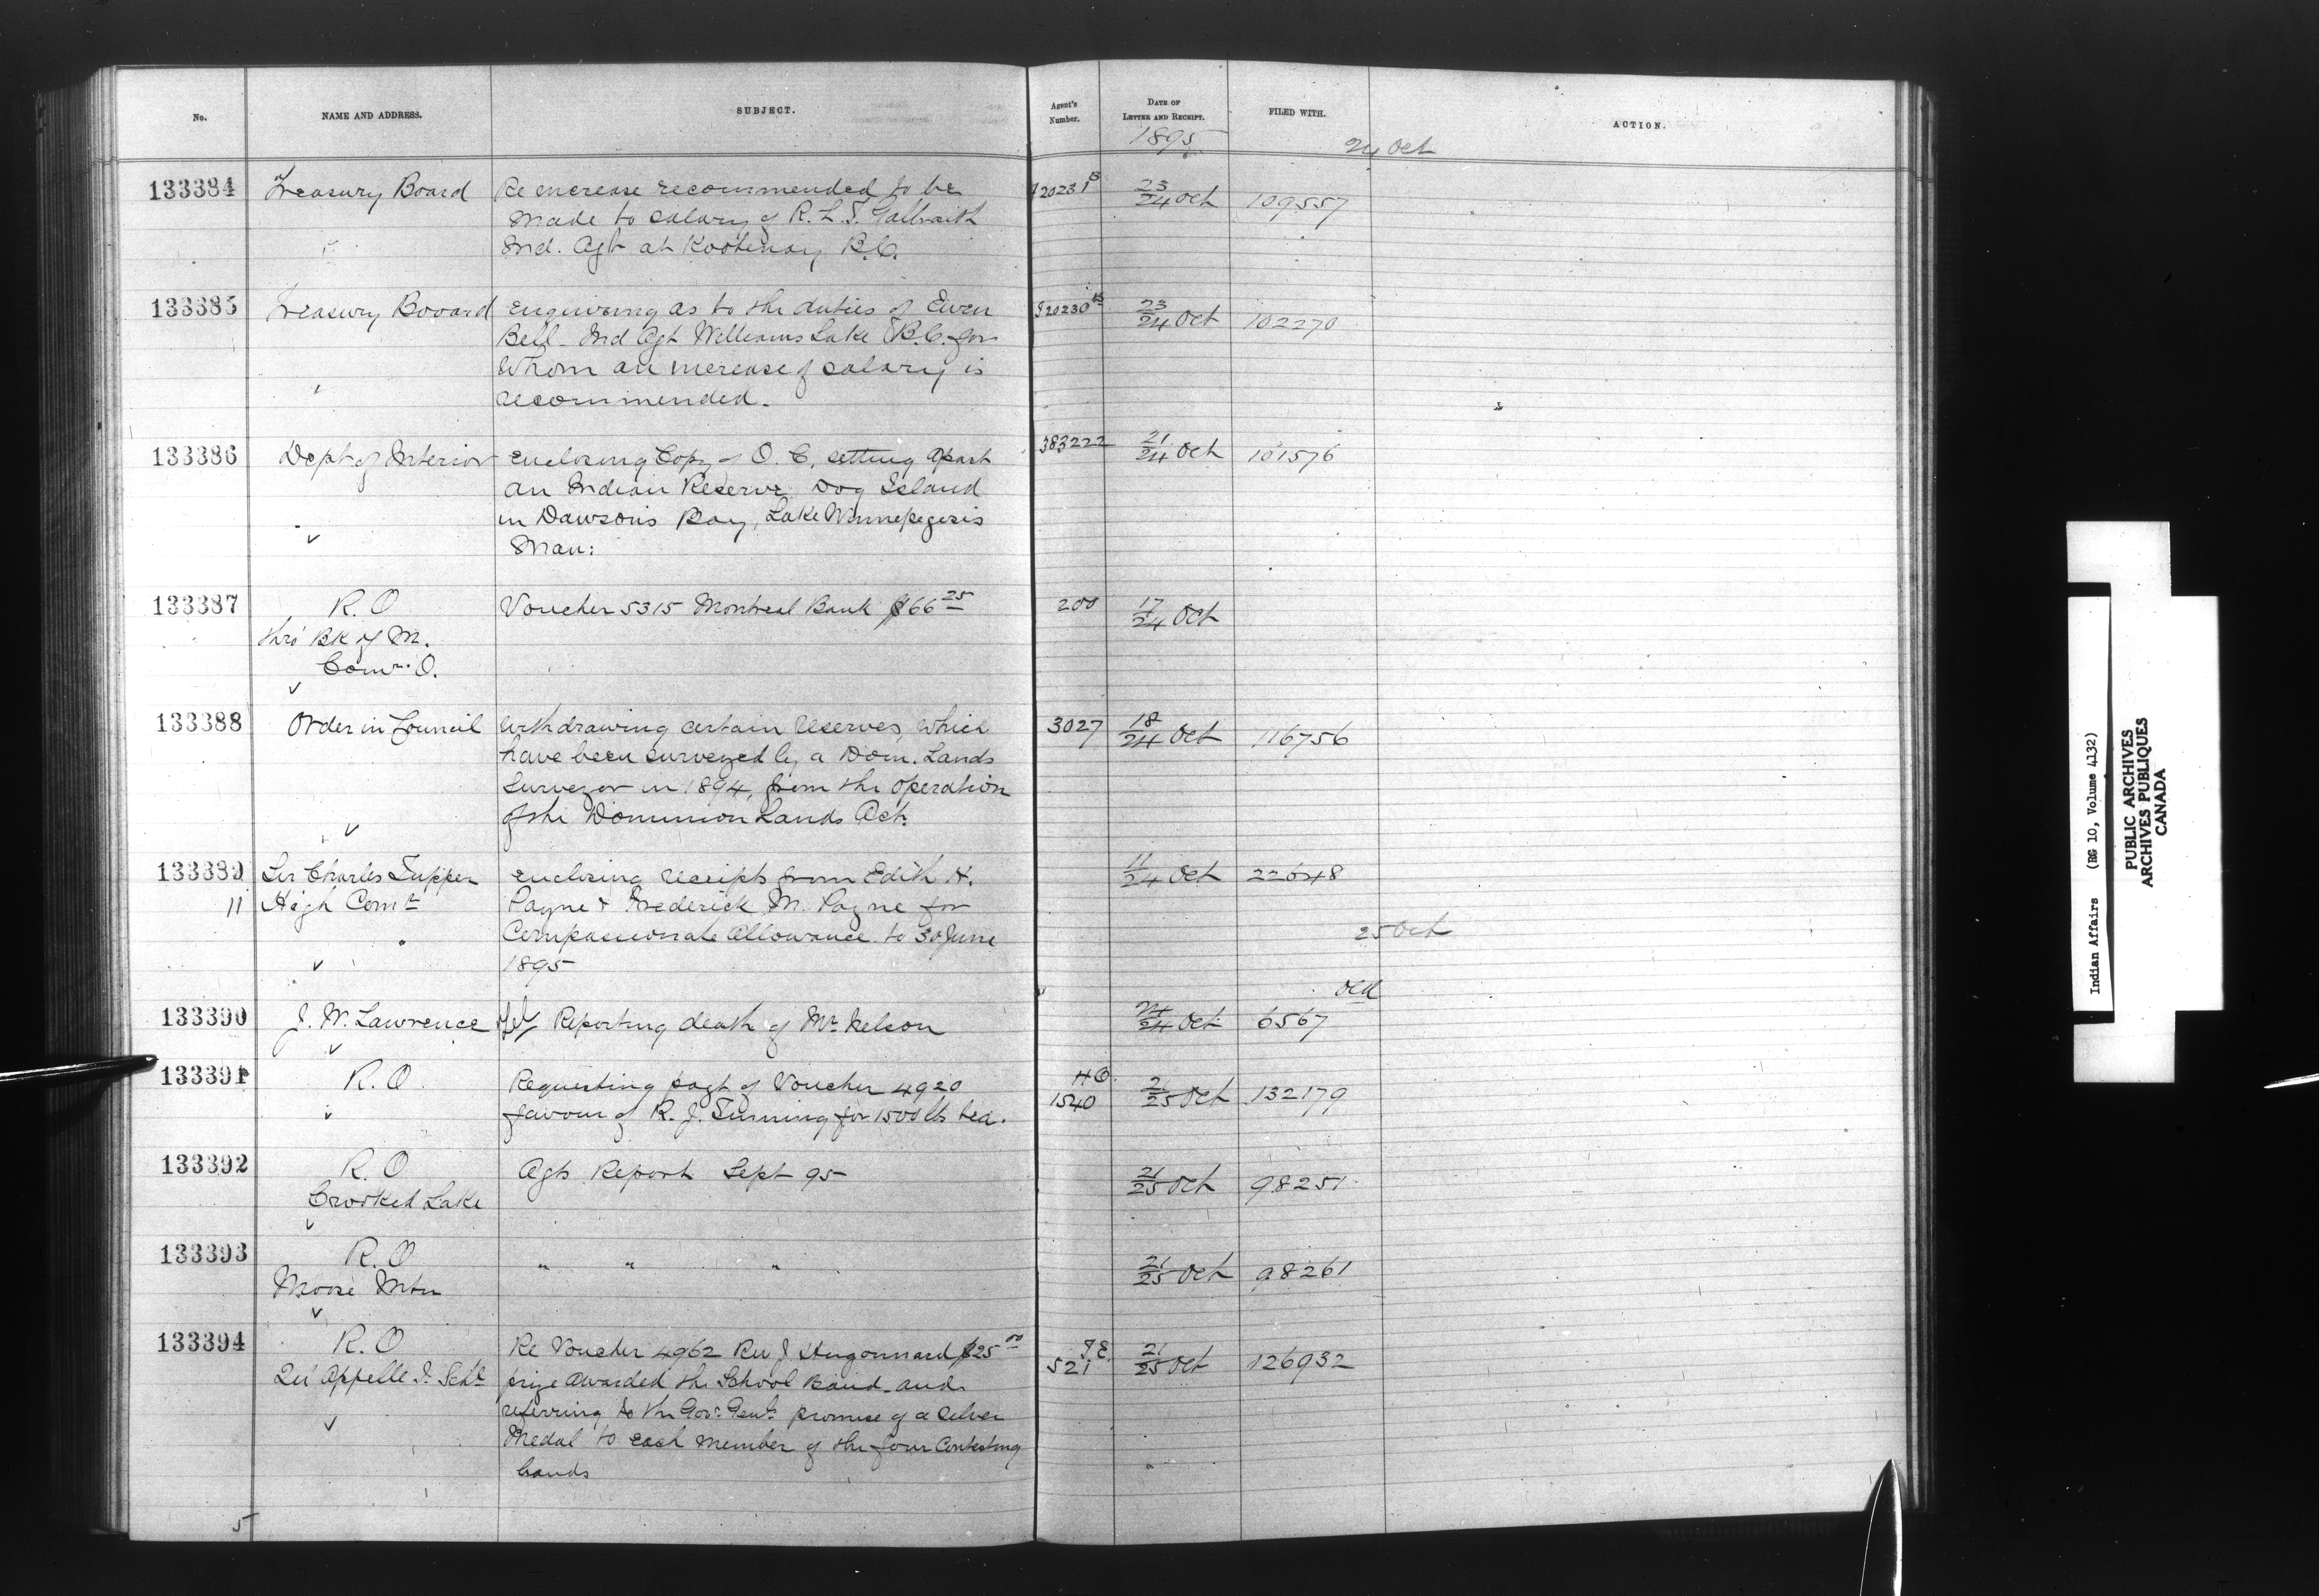 No. NAME AND ADDRESS. SUBJECT. Agent's Number. DATE OF LETTER AND RECEIPT. FILED WITH. ACTION.
1895 24 Oct
133384 Treasury Board Re increase recommended to be 20231 B 23/24 Oct 109557
made to salary of R. L. T. Galbraith
Ind. Agt at Kootenay B.C.
133385 Treasury Booard enquiring as to the duties of Ewen 20230 B 23/24 Oct 102270
Bell - Ind Agt Williams Lake B.C. for
whom an increase of salary is
recommended.
133386 Dept of Interior enclosing Copy of O. C. setting apart 383222 21/24 Oct 101576
an Indian Reserve Dog Island
in Dawsons Bay, Lake Winnepegosis
Man:
133387 R. O Voucher 5315 Montreal Bank $66 25 200 17/24 Oct
thro' Bk of M.
Comr. O.
133388 Order in Council Withdrawing certain reserves, which 3027 18/24 Oct 116756
have been surveyed by a Dom. Lands
Surveyor in 1894, from the operation
of the Dominion Lands Act.
133389 Sir Charles Tupper enclosing receipts from Edith H. 11/24 Oct 22648
11 High Comr Payne & Frederick M. Payne for
Compassionate Allowance to 30 June 25 Oct
1895
old
133390 J. W. Lawrence tel/ Reporting death of Mr Nelson 24/24 Oct 6567
133391 R. O. Requesting payt of Voucher 4920 H O. 1540 21/25 Oct 132179
favour of R. J. for 1500 lbs tea.
133392 R. O Agts Report Sept 95 21/25 Oct 98251
Crooked Lake
133393 R. O " " " 21/25 Oct 98261
Moose Mtn
133394 R. O Re Voucher 4962 Rev J Hugonnard $25 00 521 21/25 Oct 126932
Qu'Appelle I. Schl prize awarded the School Band and
referring to the Govr. Genls. promise of a silver
medal to each member of the four Contesting
bands
5
Indian Affairs (RG 10, Volume 4132)
PUBLIC ARCHIVES
ARCHIVES PUBLIQUES
CANADA